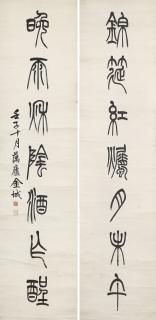 錦筵紅月未午
晚雨秋陰酒乍醒
壬子十月藕廬金城